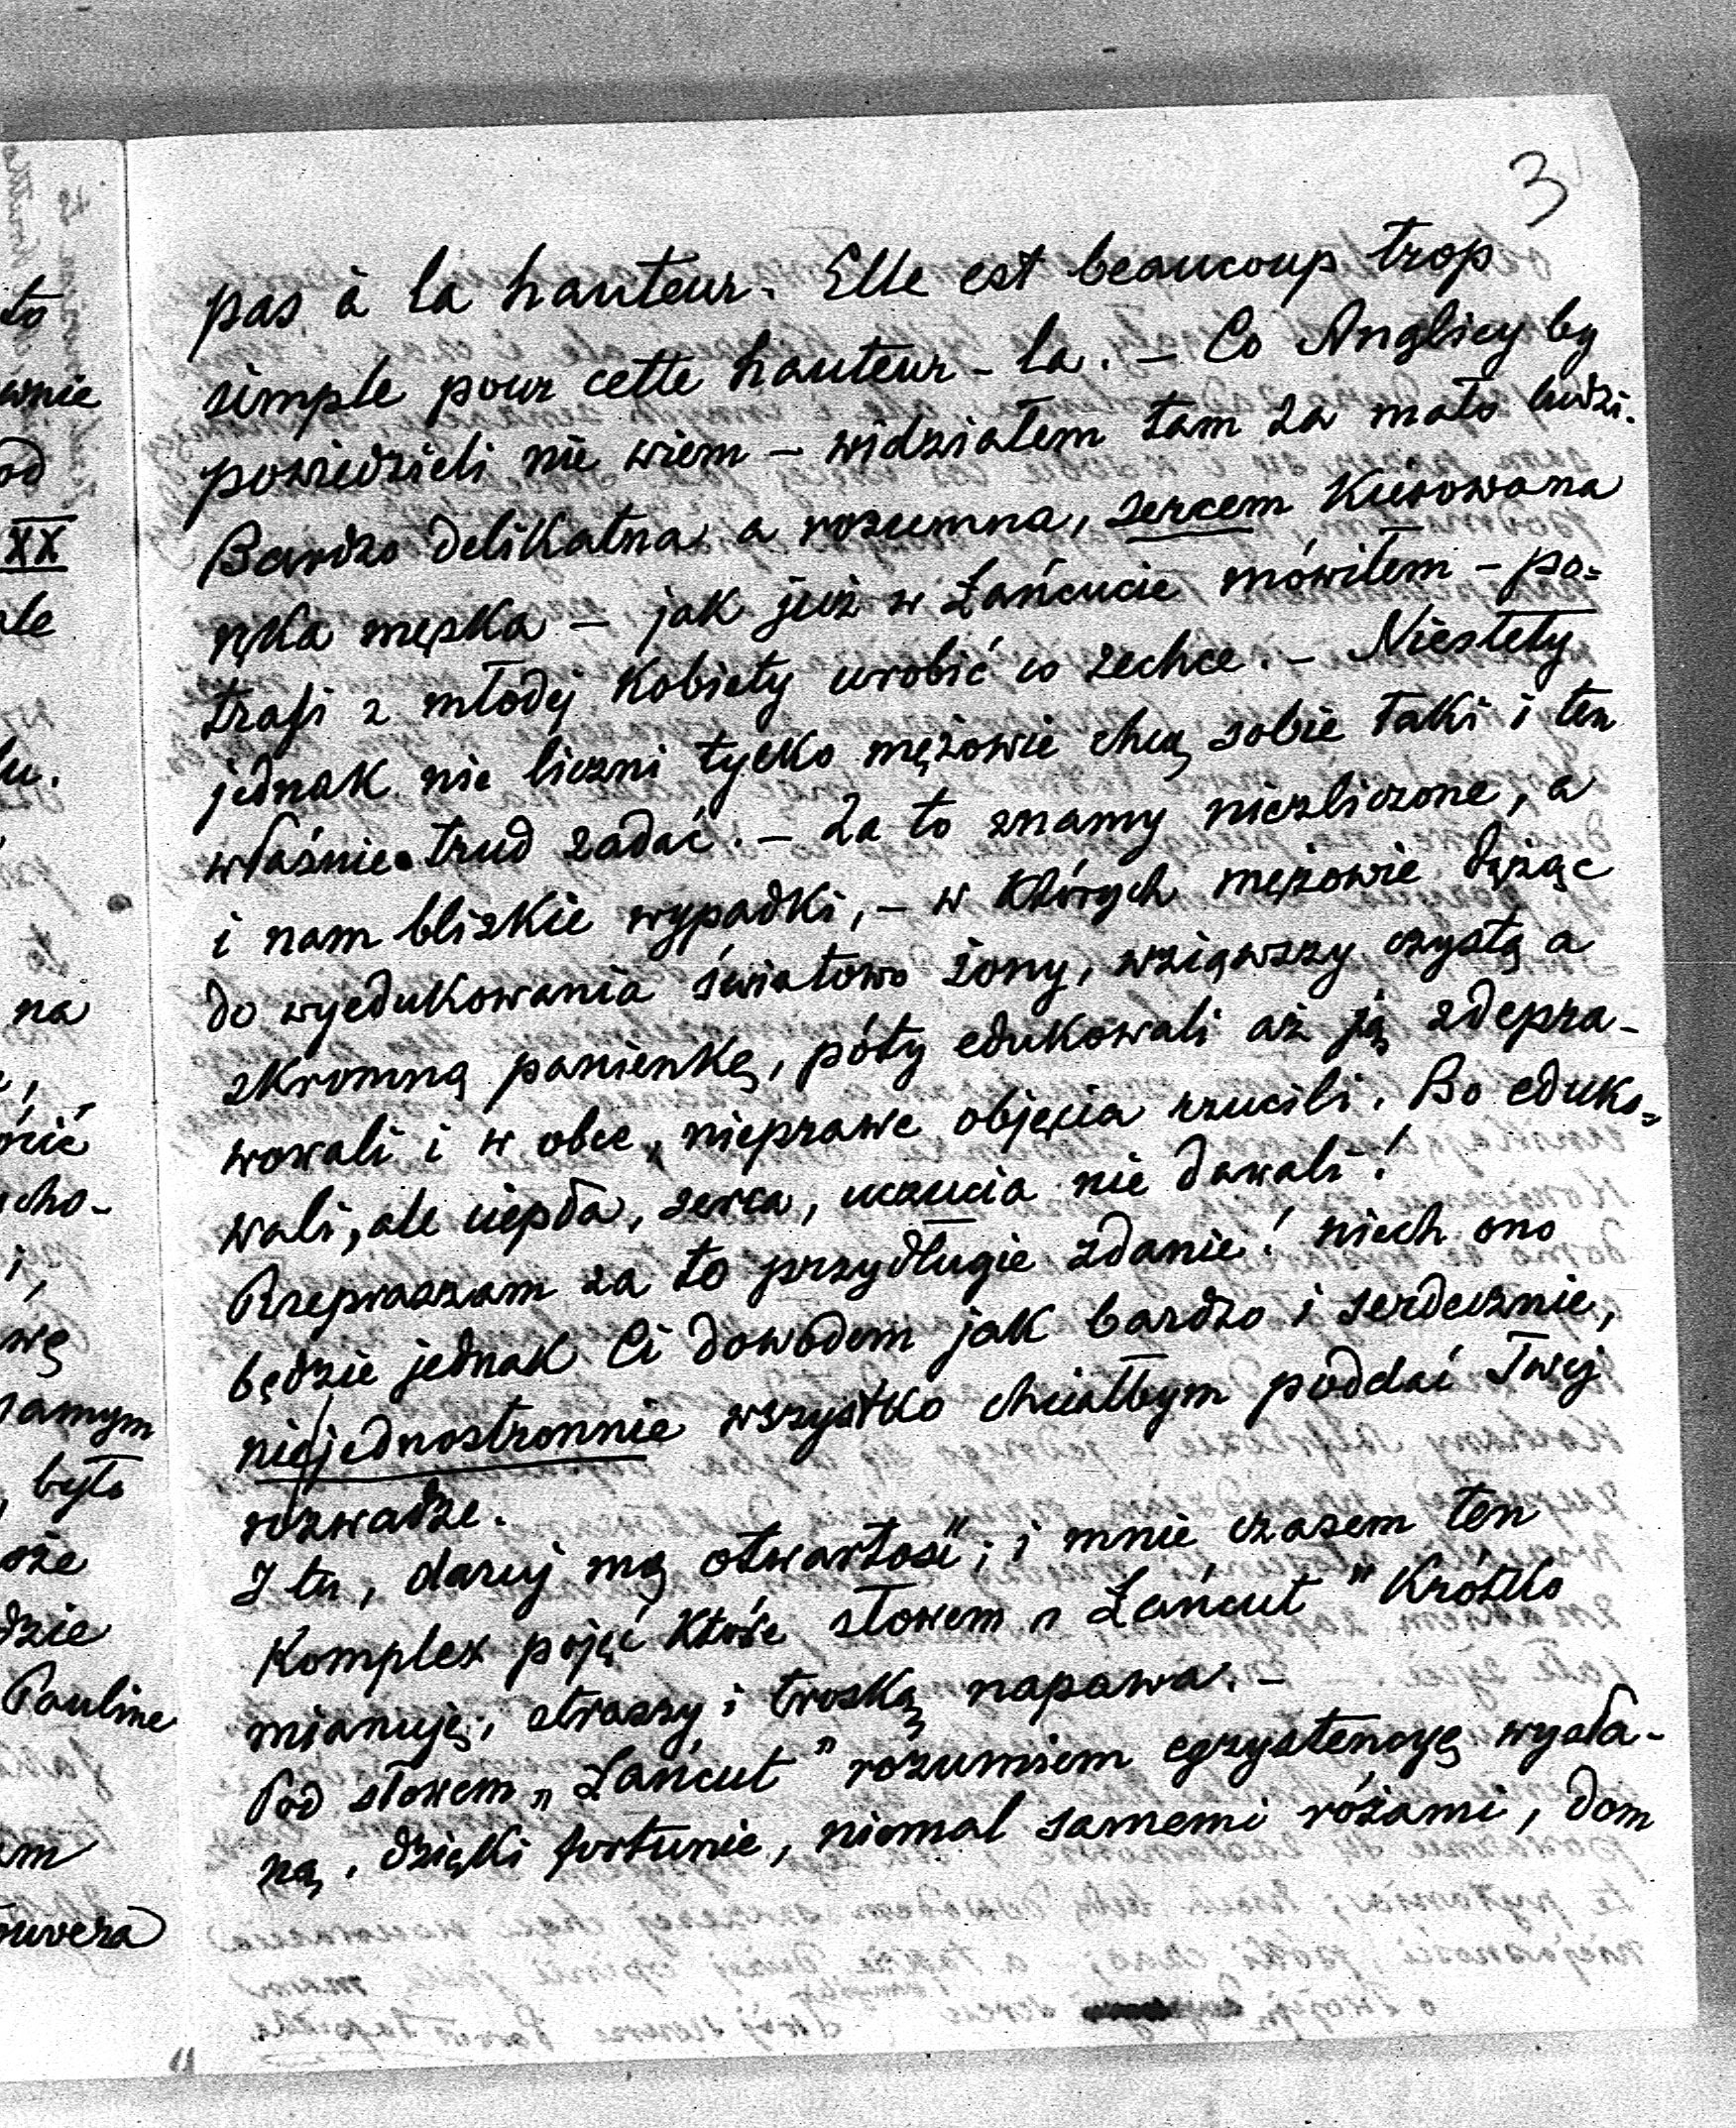 3
pas à la hauteur. Elle est beaucoup trop
simple pour cette hauteur-la. – Co Anglicy by
powiedzieli nie wiem – widziałem tam za mało ludzi.
Bardzo delikatna a rozumna, sercem kierowana
ręka męska – jak już w Łańcucie mówiłem – po=
trafi z młodej kobiety urobić co zechce. – Niestety
jednak nie liczni tylko mężowie chcą sobie taki i ten
właśnie trud zadać. – Za to znamy niezliczone, a
i nam blizkie wypadki, – w których mężowie dążąc
do wyedukowania światowo żony, wziąwszy czystą a
skromną panienkę, póty edukowali aż ją zdepra-
wowali i w obce, nieprawe objęcia rzucili. Bo eduko=
wali, ale ciepła, serca, uczucia nie dawali!
Przepraszam za to przydługie zdanie! niech ono
będzie jednak Ci dowodem jak bardzo i serdecznie,
niejednostronnie wszystko chciałbym poddać Twej
rozwadze.
I tu, daruj mą otwartość; i mnie czasem ten
Komplex pojęć które słowem „Łańcut" krótko
mianuję, straszy i troską napawa. –
Pod słowem „Łańcut" rozumiem egzystencyę wysła-
ną, dzięki fortunie, niemal samemi różami, dom
to
wnie
od
XX
ale
na
cho-
wę
samym
było
oże
dzie
Pauline